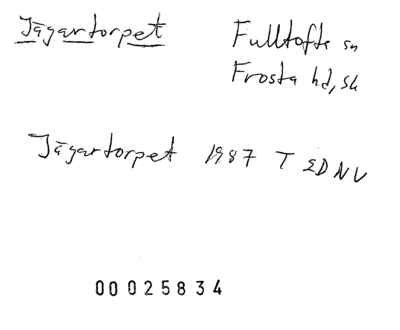 Jägartorpet
Fulltofta sn
Frosta hd, Sk
Jägartorpet 1987 T 2D NV
00025834